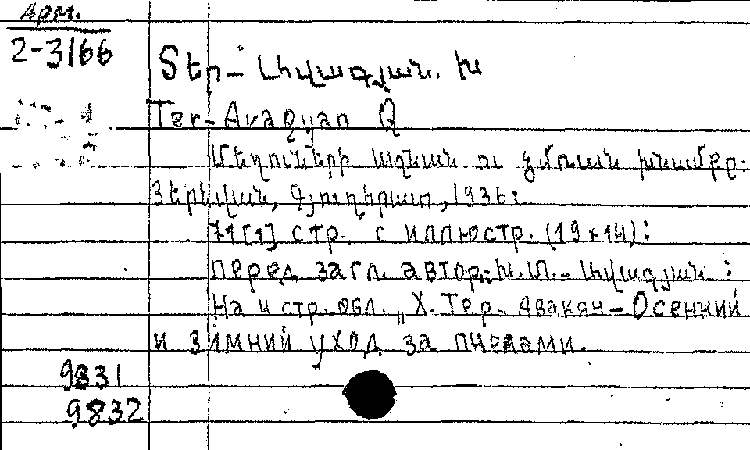 Арм.
2-3166
Տեր-Ավագյան. Խ
Ter-Avaqyan Q
Մեղուների աշնան ու ձմռան խնամքը.
Յերևան, Գյուղհրատ, 1936:
71[1] стр. с иллюстр. (19×14):
перед загл. автор: Խ.Տ.-Ավագյան:
На 4 стр. обл. „Х. Тер-Авакян-Осенний
и зимний уход за пчелами.
9831
9832